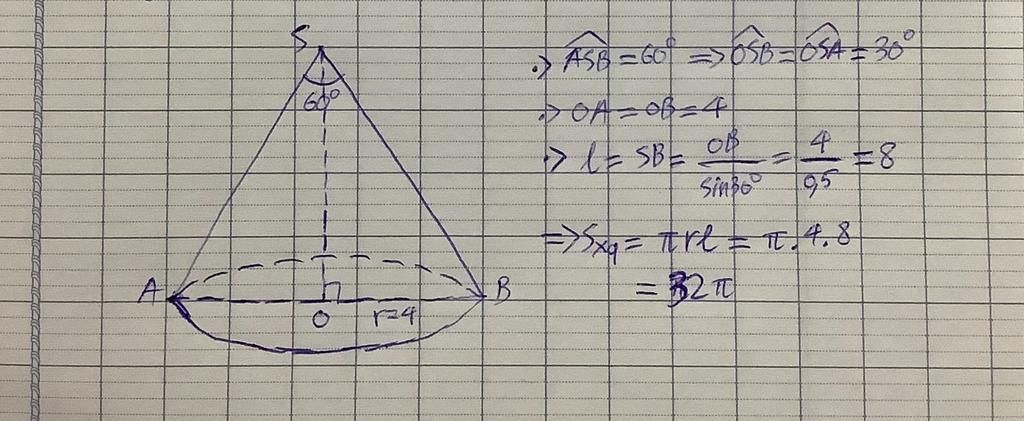 S
60°
A
O
r=4
B
·> ∠ASB = 60° => ∠OSB = ∠OSA = 30°
·> OA = OB = 4
·> l = SB = OB/sin30° = 4/0,5 = 8
=> Sxq = πrl = π.4.8
= 32π